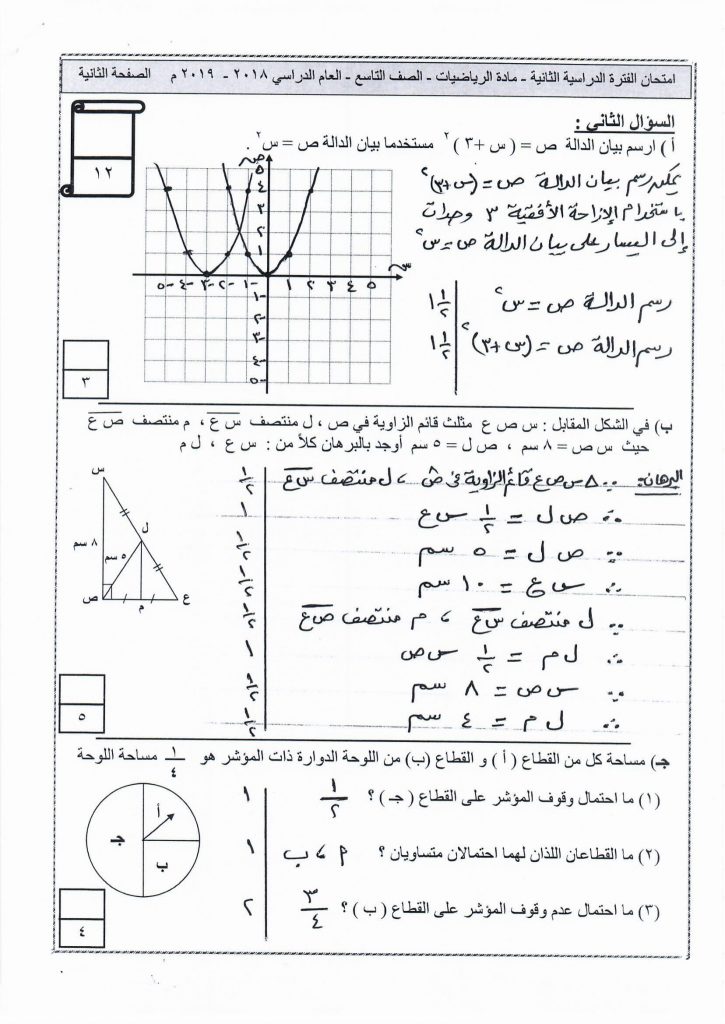 امتحان الفترة الدراسية الثانية - مادة الرياضيات - الصف التاسع - العام الدراسي ٢٠١٨ - ٢٠١٩ م الصفحة الثانية
السؤال الثاني :
١٢
أ ) ارسم بيان الدالة ص = ( س + ٣ )٢ مستخدما بيان الدالة ص = س٢ .
يمكن رسم بيان الدالة ص = (س + ٣)٢
باستخدام الإزاحة الأفقية ٣ وحدات
إلى اليسار على بيان الدالة ص = س٢
رسم الدالة ص = س٢ ١ ١/٢
رسم الدالة ص = (س + ٣)٢ ١ ١/٢
ص
٥
٤
٣
٢
١
س
-٥ -٤ -٣ -٢ -١ ١ ٢ ٣ ٤ ٥
-١
-٢
-٣
-٤
-٥
٣
ب) في الشكل المقابل : س ص ع مثلث قائم الزاوية في ص ، ل منتصف س ع ، م منتصف ص ع
حيث س ص = ٨ سم ، ص ل = ٥ سم أوجد بالبرهان كلاً من : س ع ، ل م
البرهان: ∵ ∆ س ص ع قائم الزاوية في ص ، ل منتصف س ع ١/٢
∴ ص ل = ١/٢ س ع ١
∵ ص ل = ٥ سم ١/٢
∴ س ع = ١٠ سم ١/٢
∵ ل منتصف س ع ، م منتصف ص ع ١/٢
∴ ل م = ١/٢ س ص ١
∵ س ص = ٨ سم ١/٢
∴ ل م = ٤ سم ١/٢
س
ل
٨ سم
٥ سم
ص
م
ع
٥
جـ) مساحة كل من القطاع ( أ ) و القطاع (ب) من اللوحة الدوارة ذات المؤشر هو ١/٤ مساحة اللوحة
(١) ما احتمال وقوف المؤشر على القطاع ( جـ ) ؟ ١/٢ ١
(٢) ما القطاعان اللذان لهما احتمالان متساويان ؟ أ ، ب ١
(٣) ما احتمال عدم وقوف المؤشر على القطاع ( ب ) ؟ ٣/٤ ٢
أ
جـ
ب
٤